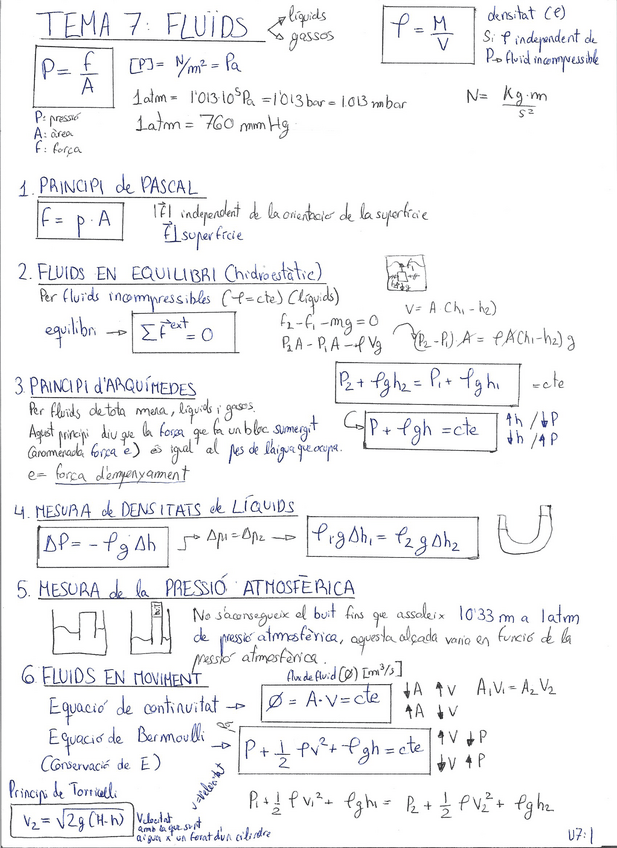 TEMA 7: FLUÏDS
líquids
gassos
P = f/A
[P] = N/m² = Pa
1atm = 1'013·10⁵Pa = 1'013 bar = 1013 mbar
1atm = 760 mmHg
P: pressió
A: àrea
f: força
ρ = M/V
densitat (ρ)
Si ρ independent de
P → fluid incompressible
N = Kg·m/s²
1. PRINCIPI de PASCAL
f = p · A
|f| independent de la orientació de la superfície
f⊥superfície
2. FLUIDS EN EQUILIBRI (hidroestàtic)
Per fluids incompressibles (ρ=cte) (líquids)
equilibri → Σf^ext = 0
f₂ - f₁ - mg = 0
P₂A - P₁A - ρVg
V = A (h₁ - h₂)
(P₂-P₁) A = ρA(h₁-h₂) g
P₂ + ρgh₂ = P₁ + ρgh₁ = cte
P + ρgh = cte
↑h / ↓P
↓h / ↑P
3. PRINCIPI d'ARQUÍMEDES
Per fluids de tota mena, líquids i gasos.
Aquest principi diu que la força que fa un bloc sumergit
(anomenada força e) és igual al pes de l'aigua que ocupa.
e = força d'empenyament
4. MESURA de DENSITATS de LÍQUIDS
ΔP = - ρg Δh → Δp₁ = Δp₂ → ρ₁gΔh₁ = ρ₂gΔh₂
5. MESURA de la PRESSIÓ ATMOSFÈRICA
No s'aconsegueix el buit fins que assoleix 10'33 m a 1atm
de pressió atmosfèrica, aquesta alçada varia en funció de la
pressió atmosfèrica.
6. FLUIDS EN MOVIMENT
flux de fluid (Ø) [m³/s]
Equació de continuitat → Ø = A·V = cte
↓A ↑V
↑A ↓V
A₁V₁ = A₂V₂
Equació de Bernoulli
(Conservació de E)
→ P + ½ρv² + ρgh = cte
↑V ↓P
↓V ↑P
v = velocitat
P₁ + ½ρv₁² + ρgh₁ = P₂ + ½ρv₂² + ρgh₂
Principi de Torricelli
v₂ = √2g(H-h)
Velocitat
amb la que surt
aigua x un forat d'un cilindre
U7:1